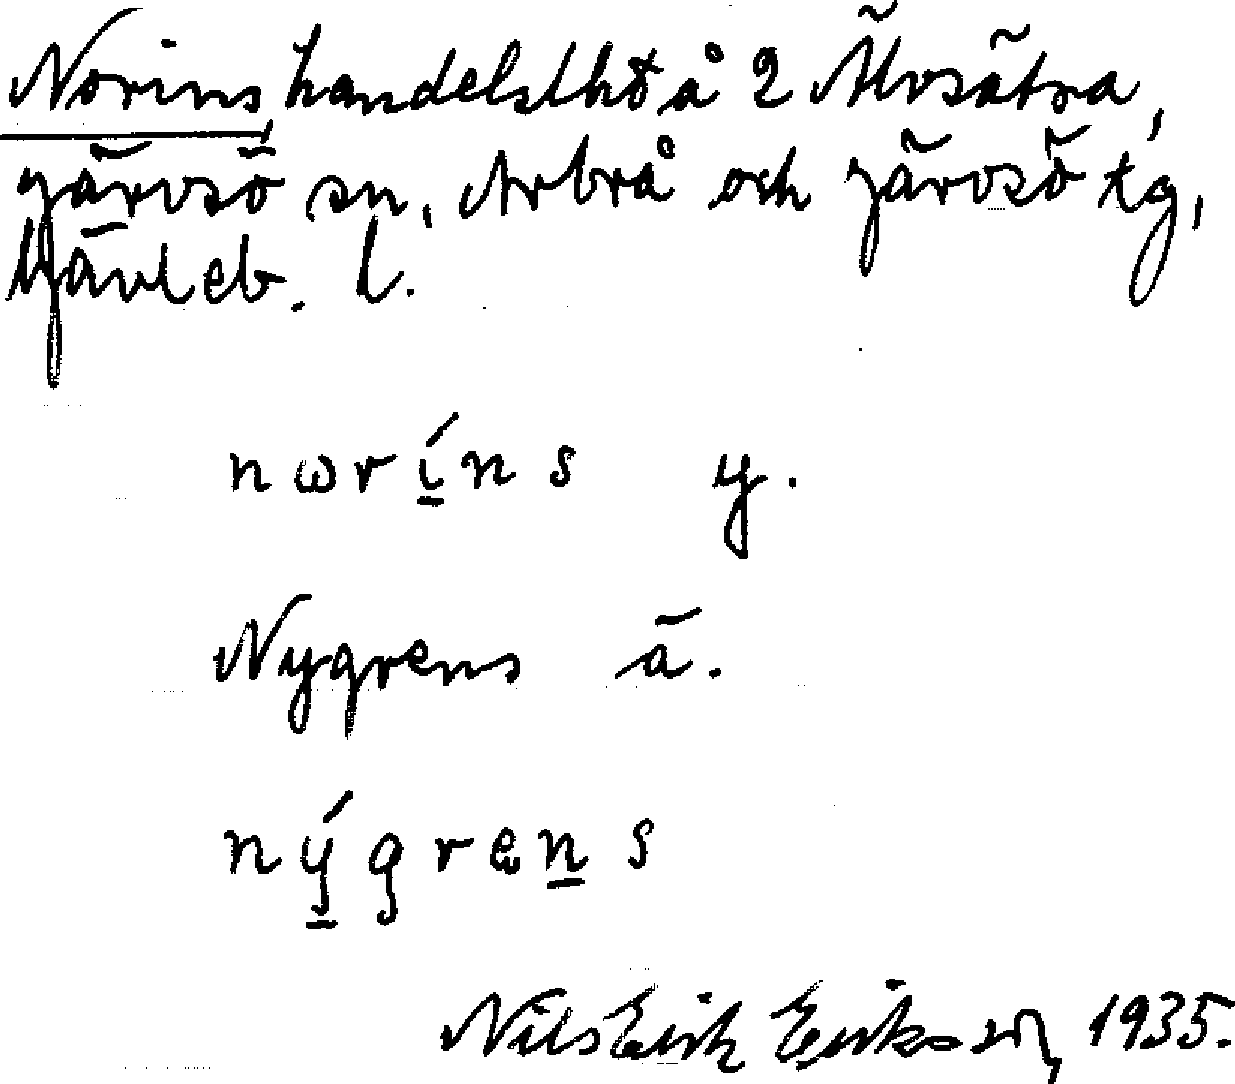 Norins, handelslht å 2 Älvsätra,
Järvsö sn, Arbrå och Järvsö tg,
Gävleb. l.
nωrí̱ns y.
Nygrens ä.
ný̱grens̱ 
Nils Erik Eriksson, 1935.